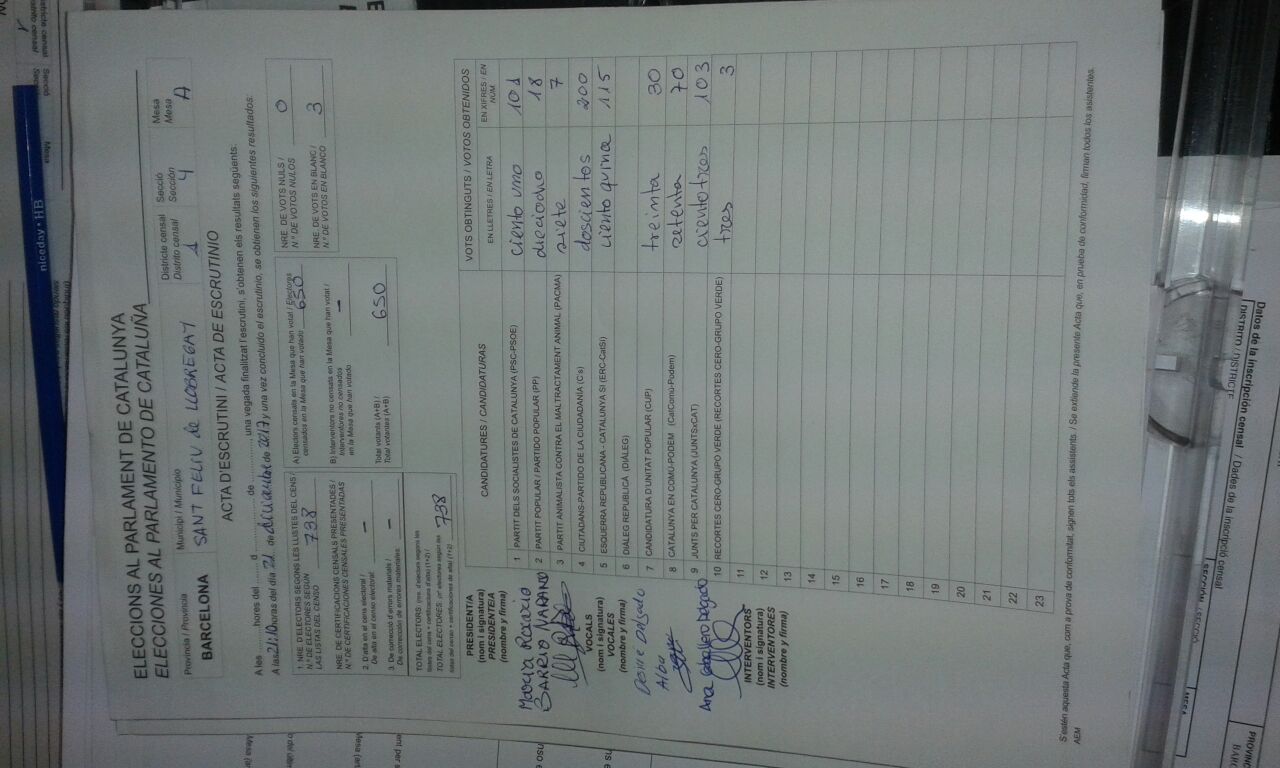 ELECCIONS AL PARLAMENT DE CATALUNYA
ELECCIONES AL PARLAMENTO DE CATALUÑA
Província / Provincia
BARCELONA
Municipi / Municipio
SANT FELIU de LLOBREGAT
Districte censal
Distrito censal
1
Secció
Sección
4
Mesa
Mesa
A
ACTA D'ESCRUTINI / ACTA DE ESCRUTINIO
A les ........ hores del ........ d ........ de ........ una vegada finalitzat l'escrutini, s'obtenen els resultats següents:
A las 21:10 horas del día 21 de diciembre de 2017 y una vez concluido el escrutinio, se obtienen los siguientes resultados:
1. NRE. D'ELECTORS SEGONS LES LLISTES DEL CENS /
N.º DE ELECTORES SEGÚN
LAS LISTAS DEL CENSO
738
NRE. DE CERTIFICACIONS CENSALS PRESENTADES /
N.º DE CERTIFICACIONES CENSALES PRESENTADAS
2. D'alta en el cens electoral /
De alta en el censo electoral
–
3. De correcció d'errors materials /
De corrección de errores materiales
–
TOTAL ELECTORS: (nre. d'electors segons les
llistes del cens + certificacions d'alta) (1+2) /
TOTAL ELECTORES: (nº electores según las
listas del censo + certificaciones de alta) (1+2)
738
A) Electors censats en la Mesa que han votat / Electores
censados en la Mesa que han votado
650
B) Interventors no censats en la Mesa que han votat /
Interventores no censados
en la Mesa que han votado
–
Total votants (A+B) /
Total votantes (A+B)
650
NRE. DE VOTS NULS /
N.º DE VOTOS NULOS
0
NRE. DE VOTS EN BLANC /
N.º DE VOTOS EN BLANCO
3
PRESIDÈNCIA
(nom i signatura)
PRESIDENTE/A
(nombre y firma)
BARRIO
VOCALS
(nom i signatura)
VOCALES
(nombre y firma)
Delgado
Alba
Ana Caballero Delgado
INTERVENTORS
(nom i signatura)
INTERVENTORES
(nombre y firma)
CANDIDATURES / CANDIDATURAS
VOTS OBTINGUTS / VOTOS OBTENIDOS
EN LLETRES / EN LETRA
EN XIFRES / EN NÚM.
1 PARTIT DELS SOCIALISTES DE CATALUNYA (PSC-PSOE) ciento uno 101
2 PARTIT POPULAR / PARTIDO POPULAR (PP) dieciocho 18
3 PARTIT ANIMALISTA CONTRA EL MALTRACTAMENT ANIMAL (PACMA) siete 7
4 CIUTADANS-PARTIDO DE LA CIUDADANÍA (C's) doscientos 200
5 ESQUERRA REPUBLICANA - CATALUNYA SÍ (ERC-CatSí) ciento quince 115
6 DIÀLEG REPUBLICÀ (DIÀLEG)
7 CANDIDATURA D'UNITAT POPULAR (CUP) treinta 30
8 CATALUNYA EN COMÚ-PODEM (CatComú-Podem) setenta 70
9 JUNTS PER CATALUNYA (JUNTSxCAT) ciento tres 103
10 RECORTES CERO-GRUPO VERDE (RECORTES CERO-GRUPO VERDE) tres 3
11
12
13
14
15
16
17
18
19
20
21
22
23
S'estén aquesta Acta que, com a prova de conformitat, signen tots els assistents. / Se extiende la presente Acta que, en prueba de conformidad, firman todos los asistentes.
AEM
niceday • HB
Datos de la inscripción censal / Dades de la inscripció censal
DISTRITO / DISTRICTE
SECCIÓN / SECCIÓ
MESA